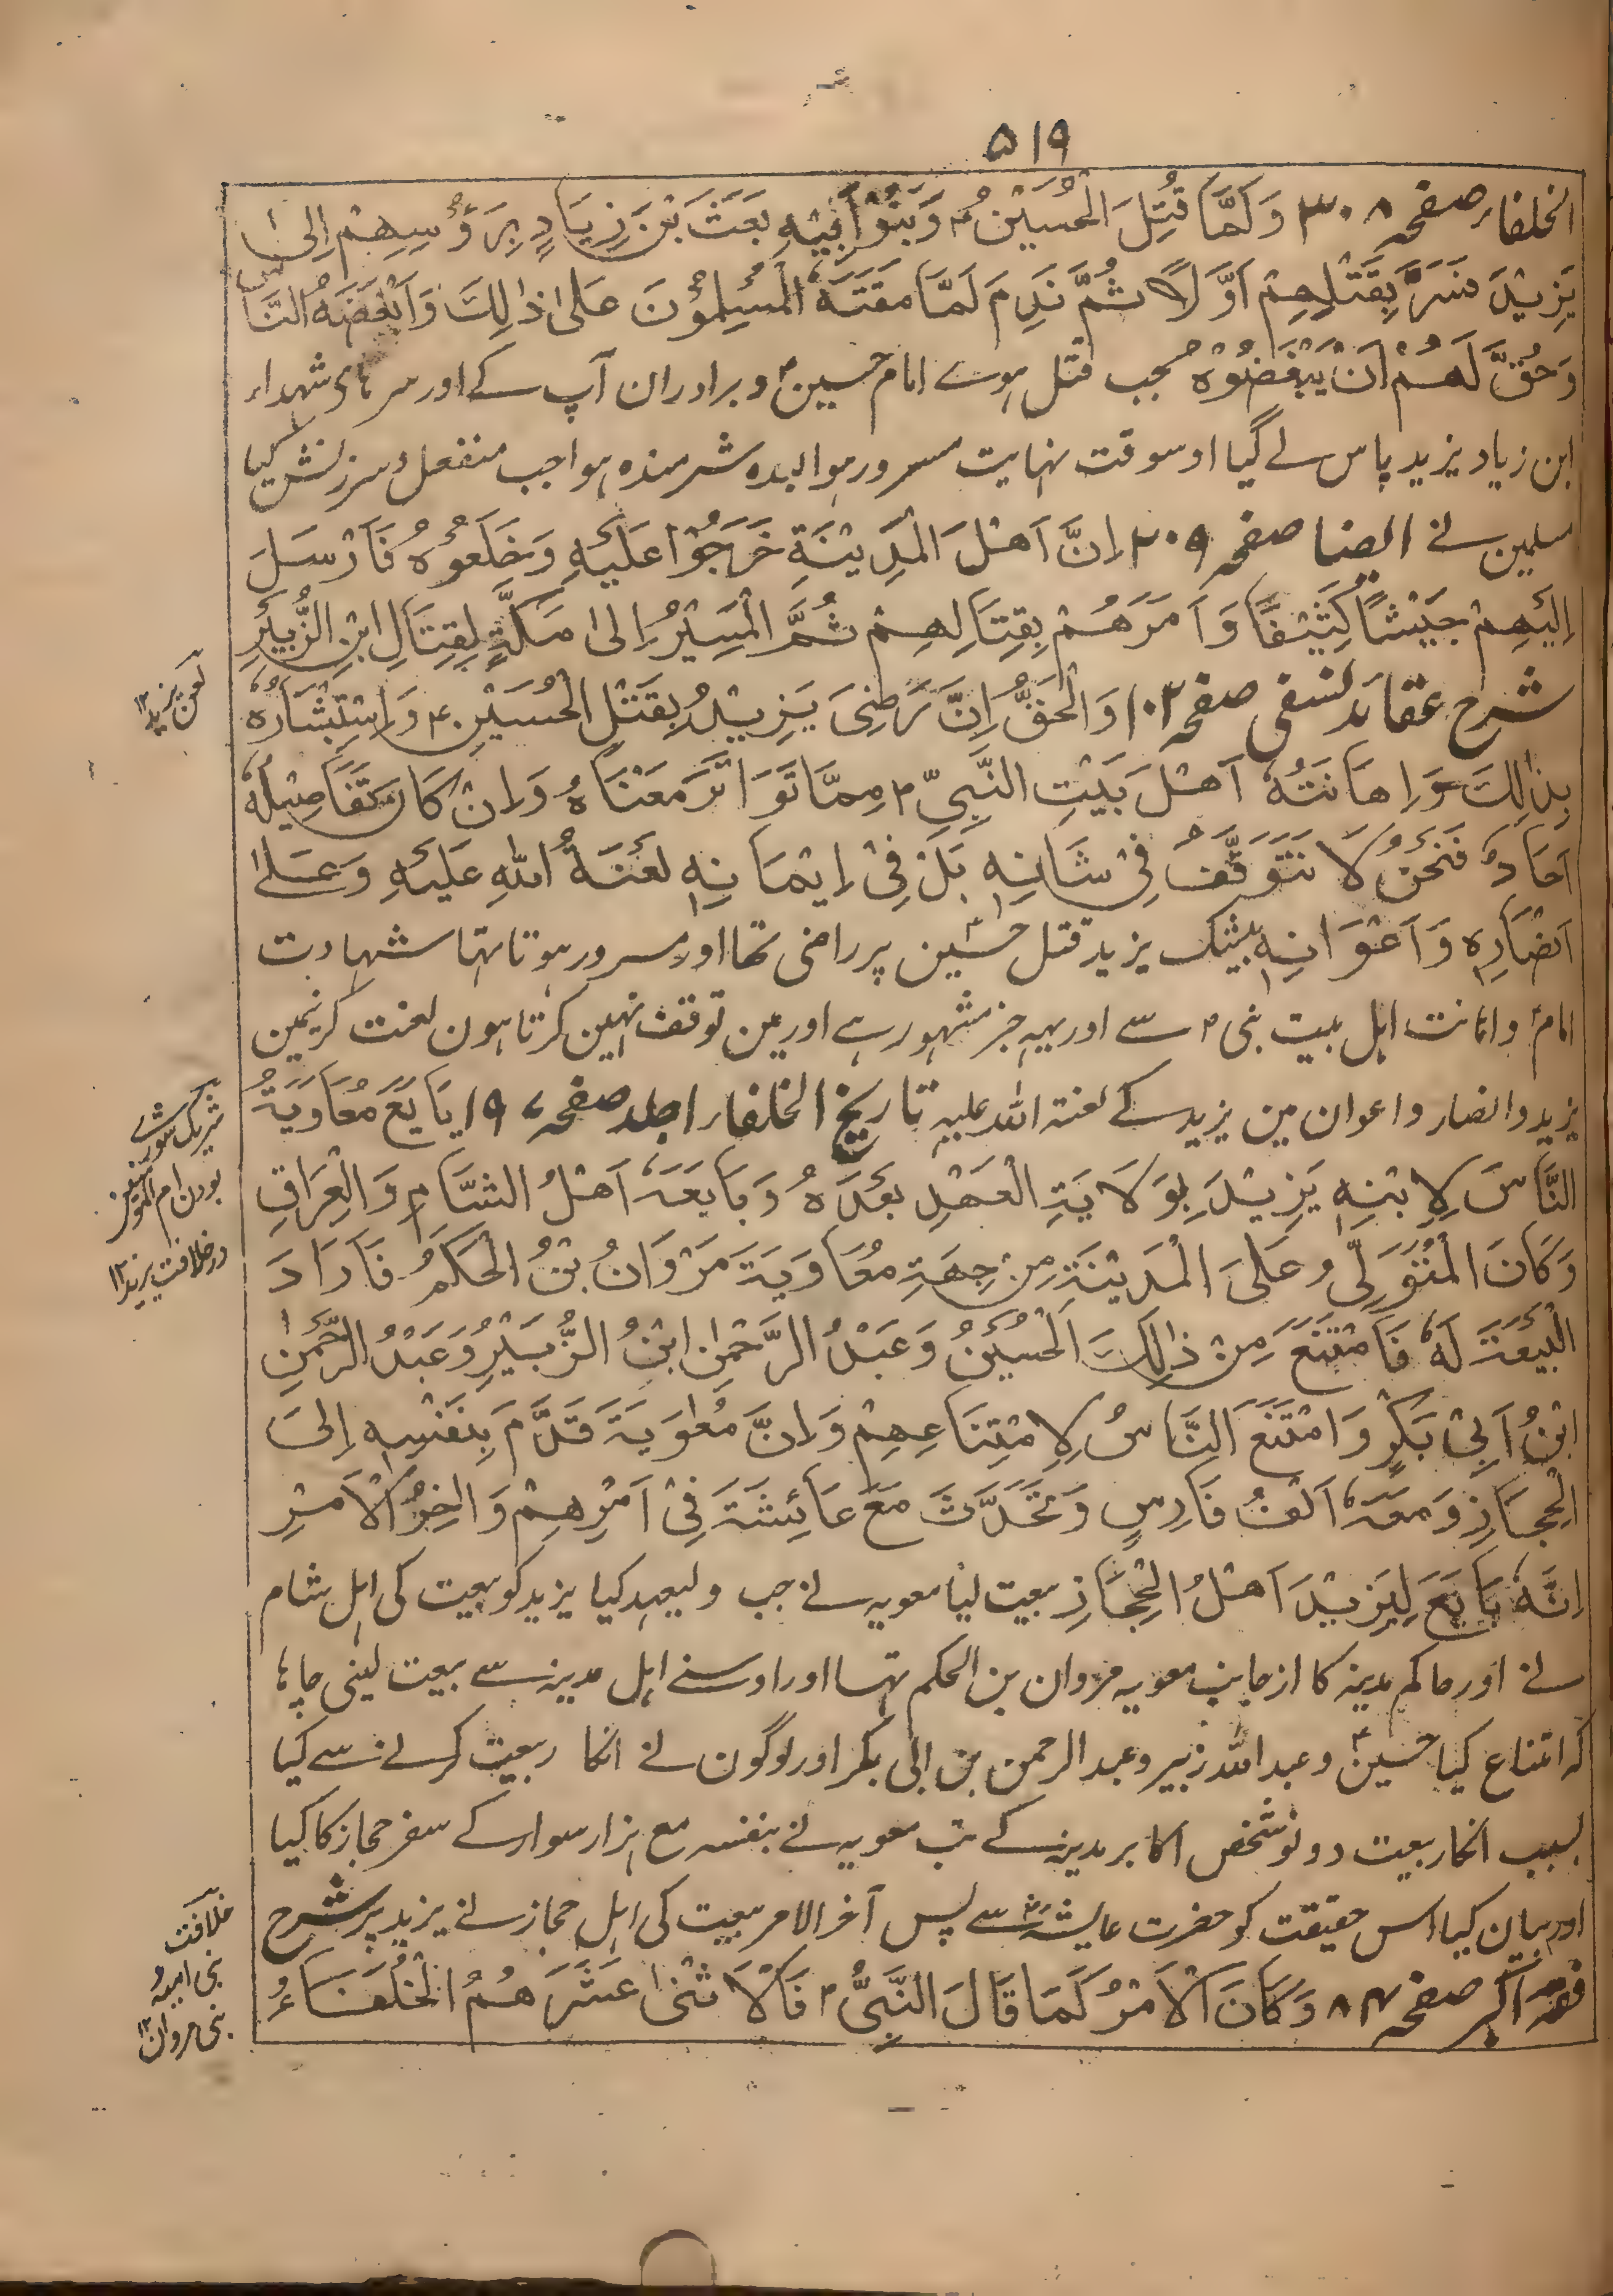 ۵۱۹
الخلفاء صفحہ ۳۰۸ وَلَمَّا قُتِلَ الْحُسَيْنُ ؑ وَبَنُوْ اَبِيْهِ بَعَثَ بْنَ زِيَادٍ بِرَؤُسِهِمْ اِلىٰ
يَزِيْدَ فَسَرَّ بِقَتْلِهِمْ اَوَّلًا ثُمَّ نَدِمَ لَمَّا مَقَتَهُ الْمُسْلِمُوْنَ عَلىٰ ذٰلِكَ وَاَبْغَضَهُ النَّاسُ
وَحُقَّ لَهُمْ اَنْ يَبْغَضُوْهُ جب قتل ہوے امام حسین ؑ و برادران آپ کے اور سرہای شہداء
ابن زیاد یزید پاس لے گیا اوسوقت نہایت مسرور ہوا بدہ شرمندہ ہوا جب منفعل و سرزنش کیا
مسلمین نے ایضا صفحہ ۲۰۹ اِنَّ اَهْلَ الْمَدِيْنَةِ خَرَجُوْا عَلَيْهِ وَخَلَعُوْهُ فَاَرْسَلَ
اِلَيْهِمْ جَيْشًا كَثِيْفًا وَاَمَرَهُمْ بِقِتَالِهِمْ ثُمَّ الْمَسِيْرُ اِلىٰ مَكَّةَ لِقِتَالِ ابْنِ الزُّبَيْرِ
شرح عقائد نسفی صفحہ ۱۰۲ وَالْحَقُّ اِنَّ رَضِىَ يَزِيْدُ بِقَتْلِ الْحُسَيْنِ ؑ وَاِسْتِبْشَارُهٗ
بِذٰلِكَ وَاِهَانَتُهٗ اَهْلَ بَيْتِ النَّبِيِّ ؐ مِمَّا تَوَاتَرَ مَعْنَاهُ وَاِنْ كَانَ تَفَاصِيْلُهٗ
اٰحَادٌ فَنَحْنُ لَا نَتَوَقَّفُ فِيْ شَانِهٖ بَلْ فِيْ اِيْمَانِهٖ لَعْنَةُ اللهِ عَلَيْهِ وَعَلىٰ
اَنْصَارِهٖ وَاَعْوَانِهٖ بیشک یزید قتل حسین ؑ پر راضی تھا اور مسرور ہوتا تہا شہادت
امام ؑ و اہانت اہل بیت نبی ؐ سے اور یہہ جز مشہور ہے اور مین توقف نہین کرتا ہون لعنت کرنیمین
یزید و انصار و اعوان مین یزید کے لعنۃ اللہ علیہ تاریخ الخلفاء اجلد صفحہ ۱۹۷ بَايَعَ مُعَاوِيَةُ
النَّاسَ لِاِبْنِهٖ يَزِيْدَ بِوِلَايَةِ الْعَهْدِ بَعْدَهُ وَبَايَعَهٗ اَهْلُ الشَّامِ وَالْعِرَاقِ
وَكَانَ الْمُتَوَلِّيْ عَلَى الْمَدِيْنَةِ مِنْ جِهَةِ مُعَاوِيَةَ مَرْوَانُ بْنُ الْحَكَمُ فَاَرَادَ
الْبَيْعَةَ لَهٗ فَامْتَنَعَ مِنْ ذٰلِكَ الْحُسَيْنُ وَعَبْدُ الرَّحْمٰنِ ابْنُ الزُّبَيْرُ وَعَبْدُ الرَّحْمٰنِ
ابْنُ اَبِيْ بَكْرٍ وَامْتَنَعَ النَّاسُ لِاِمْتِنَاعِهِمْ وَاِنَّ مُعٰوِيَةَ قَدَّمَ بِنَفْسِهٖ اِلىَ
الْحِجَازِ وَمَعَهٗ اَلْفُ فَارِسٍ وَتَحَدَّثَ مَعَ عَائِشَةَ فِيْ اَمْرِهِمْ وَاٰخِرُ الْاَمْرِ
اِنَّهٗ بَايَعَ لِيَزِيْدَ اَهْلُ الْحِجَازِ بیعت لیا معویہ نے جب ولیعہد کیا یزید کو بیعت کی اہل شام
نے اور حاکم مدینہ کا از جانب معویہ مروان بن الحکم تہا اور اوسنے اہل مدینہ سے بیعت لینی چاہا
کہ امتناع کیا حسین ؑ و عبداللہ زبیر و عبدالرحمن بن ابی بکر اور لوگون نے انکا ربیعت کرنے سے کیا
بسبب انکار بیعت دونو شخص اکابر مدینہ کے تب معویہ نے بنفسہ مع ہزار سوار کے سفر حجاز کا کیا
اور بیان کیا اس حقیقت کو حضرت عایشہ ؓ سے پس آخر الامر بیعت کی اہل حجاز نے یزید پر شرح
فقہ اکبر صفحہ ۸۴ وَكَانَ الْاَمْرُ كَمَا قَالَ النَّبِيُّ ؐ فَالْاِثْنٰى عَشَرَ هُمُ الْخُلَفَاءُ
لعن یزید ۱۲
شریک مشورے
بودن ام المومنین
در خلافت یزید ۱۲
خلافت
بنی امیہ و
بنی مروان ۱۲